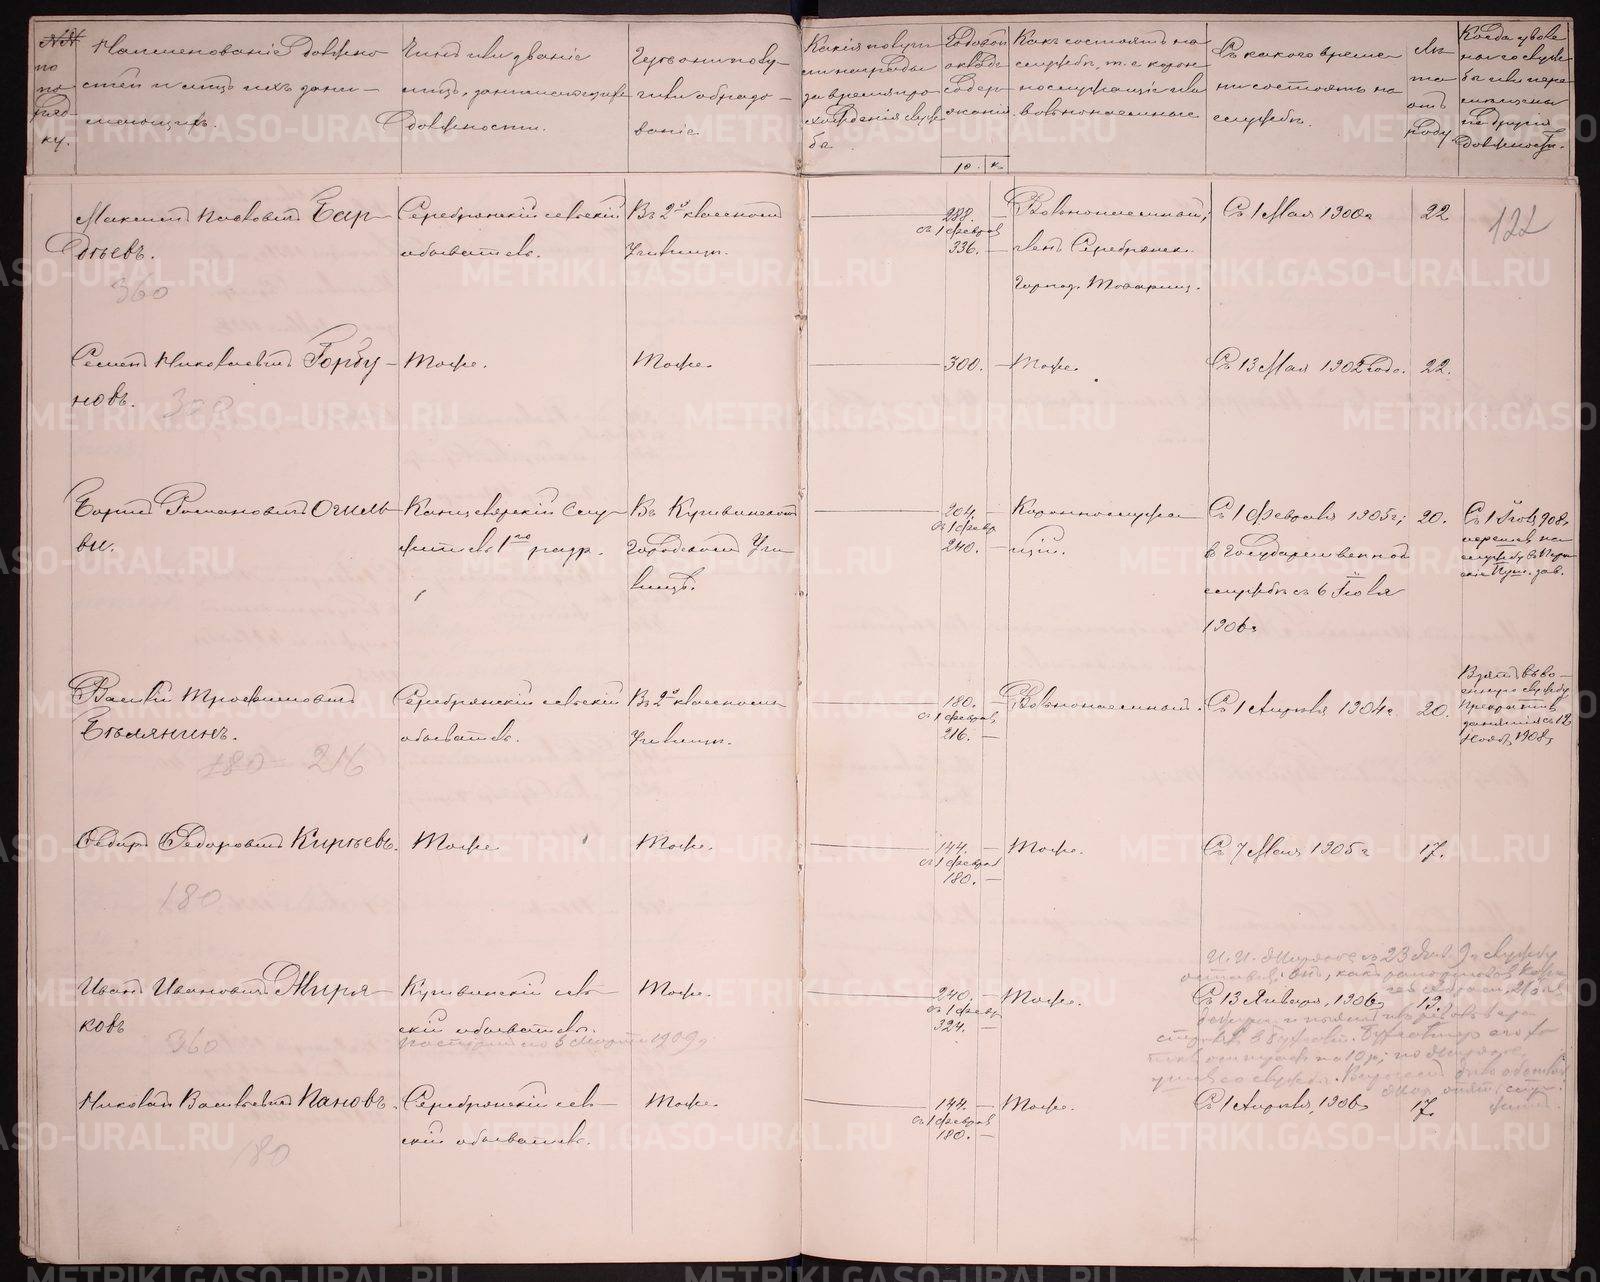 NN по по рядку.
Наименованіе должностей и лицъ ихъ занимающихъ.
Чинъ или званіе лица, занимающаго должность.
Гдѣ они получили образованіе.
Какія получили награды за время прохожденія службы
Годовой окладъ содержанія.
р. к.
Какъ состоятъ на службѣ, т. е. кароннослужащіе или вольнонаемные
Съ какого времени состоятъ на службѣ.
Лѣта отъ роду.
Когда уволены со службы или перемѣщены на другія должности.
122
Максимъ Павловичъ Бар-
дѣевъ.
360
Серебрянскій сельскій
обыватель.
Въ 2й классномъ
Училищѣ.
288. —
съ 1 февраля
336. —
Вольнонаемный,
членъ Серебрянск.
Горнод. Товарищ.
Съ 1 Мая 1900 г.
22
Семенъ Николаевичъ Горбу-
новъ.
300
Тоже.
Тоже.
300. —
Тоже.
Съ 13 Мая 1902 года.
22.
Борисъ Романовичъ Огиль-
ви.
Канцелярскій Слу-
житель 1го разр.
Въ Кушвинскомъ
Городскомъ Учи-
лищѣ.
204. —
съ 1 февр
240. —
Кароннослужа-
щій.
Съ 1 февраля 1905 г.;
въ Государственной
службѣ съ 6 Іюля
1906 г.
20.
Съ 1 Іюля 908 г.
перешел на
службу в Перм-
скія Пуш. зав.
Василій Трофимовичъ
Бѣлянинъ.
180 — 216
Серебрянскій сельскій
обыватель.
Въ 2й классномъ
Училищѣ.
180. —
съ 1 февраля
216. —
Вольнонаемный.
Съ 1 Апрѣля 1904 г.
20.
Взятъ въ во-
енную службу
прекратив
занятія съ 12
Нояб. 1908 г.
Федоръ Федоровичъ Кирѣевъ.
180
Тоже
Тоже.
144. —
съ 1 февраля
180. —
Тоже.
Съ 7 Мая 1905 г.
17.
Иванъ Ивановичъ Миря-
ковъ
360
Кушвинскій сель-
скій обыватель.
Тоже.
240. —
съ 1 февр
324. —
Тоже.
Съ 13 Января, 1906 г.
19.
Николай Васильевичъ Пановъ.
180
Серебрянскій сель-
скій обыватель.
Тоже.
144. —
съ 1 февраля
180. —
Тоже.
Съ 1 Апрѣля, 1906 г.
17.
METRIKI.GASO-URAL.RU